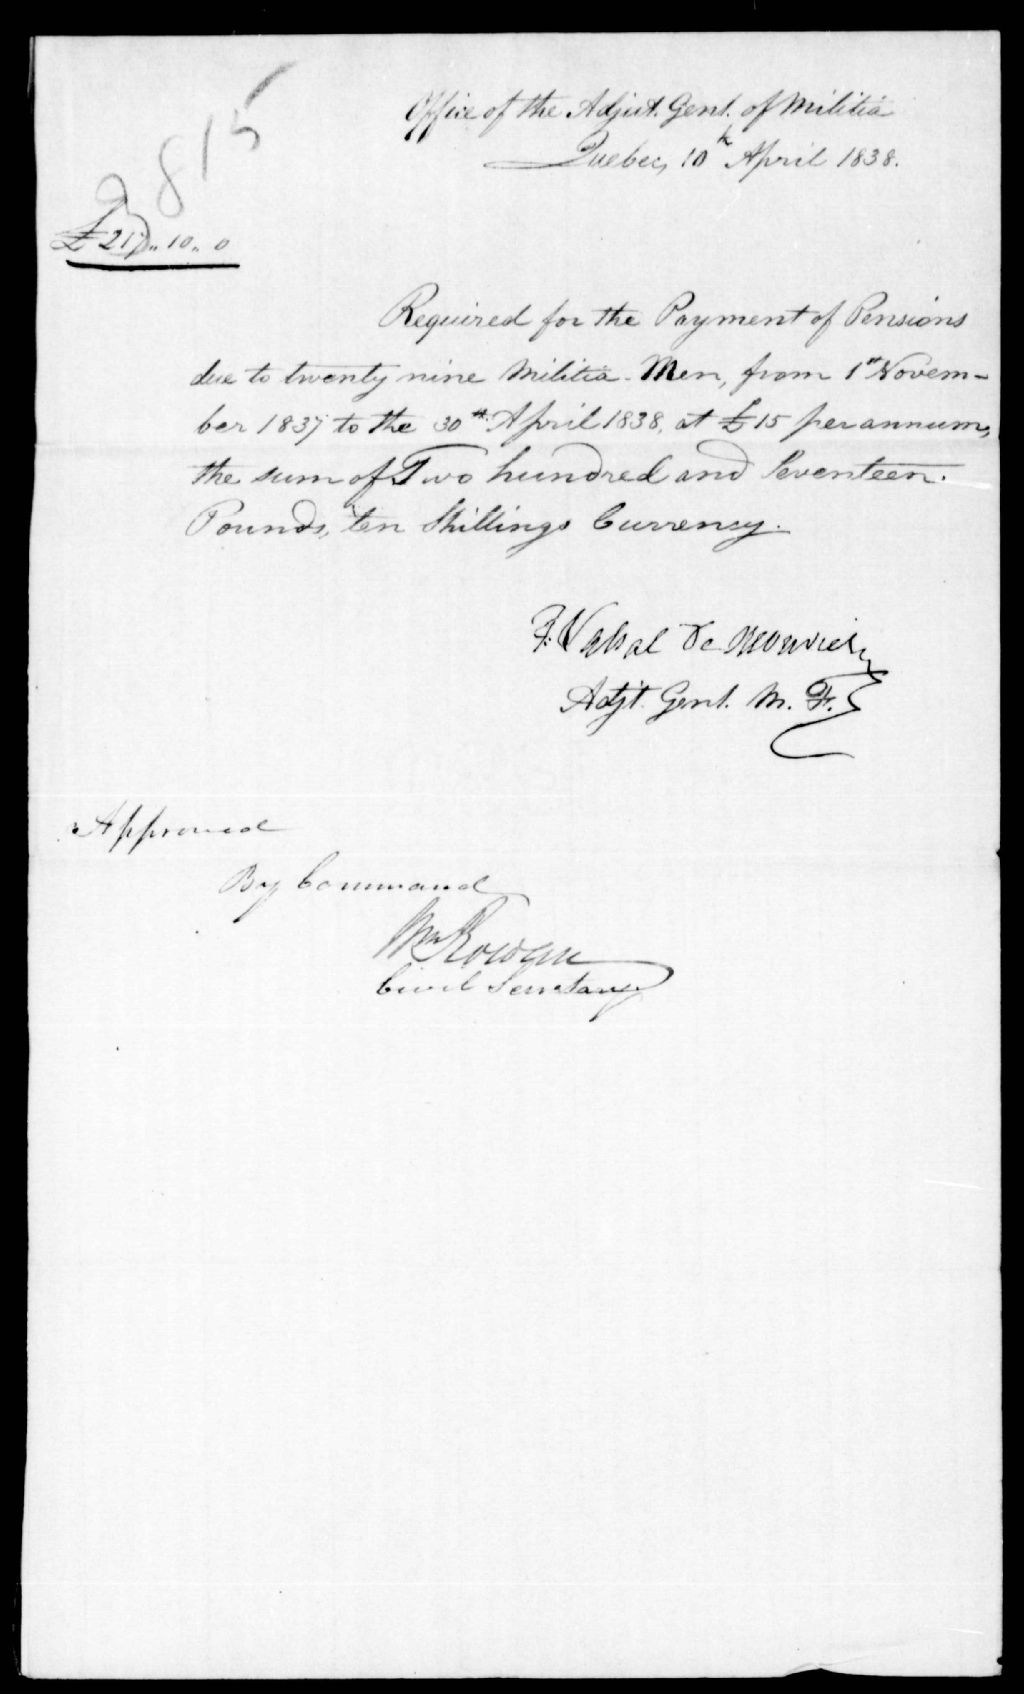 2815
Office of the Adjut. Genl. of Militia
Quebec, 10th April 1838.
£ 217 .. 10 .. 0
Required for the Payment of Pensions
due to twenty nine Militia Men, from 1st Novem-
ber 1837 to the 30th April 1838, at £15 per annum,
the sum of Two hundred and Seventeen
Pounds, ten Shillings Currency.
F. Vassal De Monviel
Adjt. Genl. M. F.
Approved
By Command
Wm Rowan
Civil Secretary